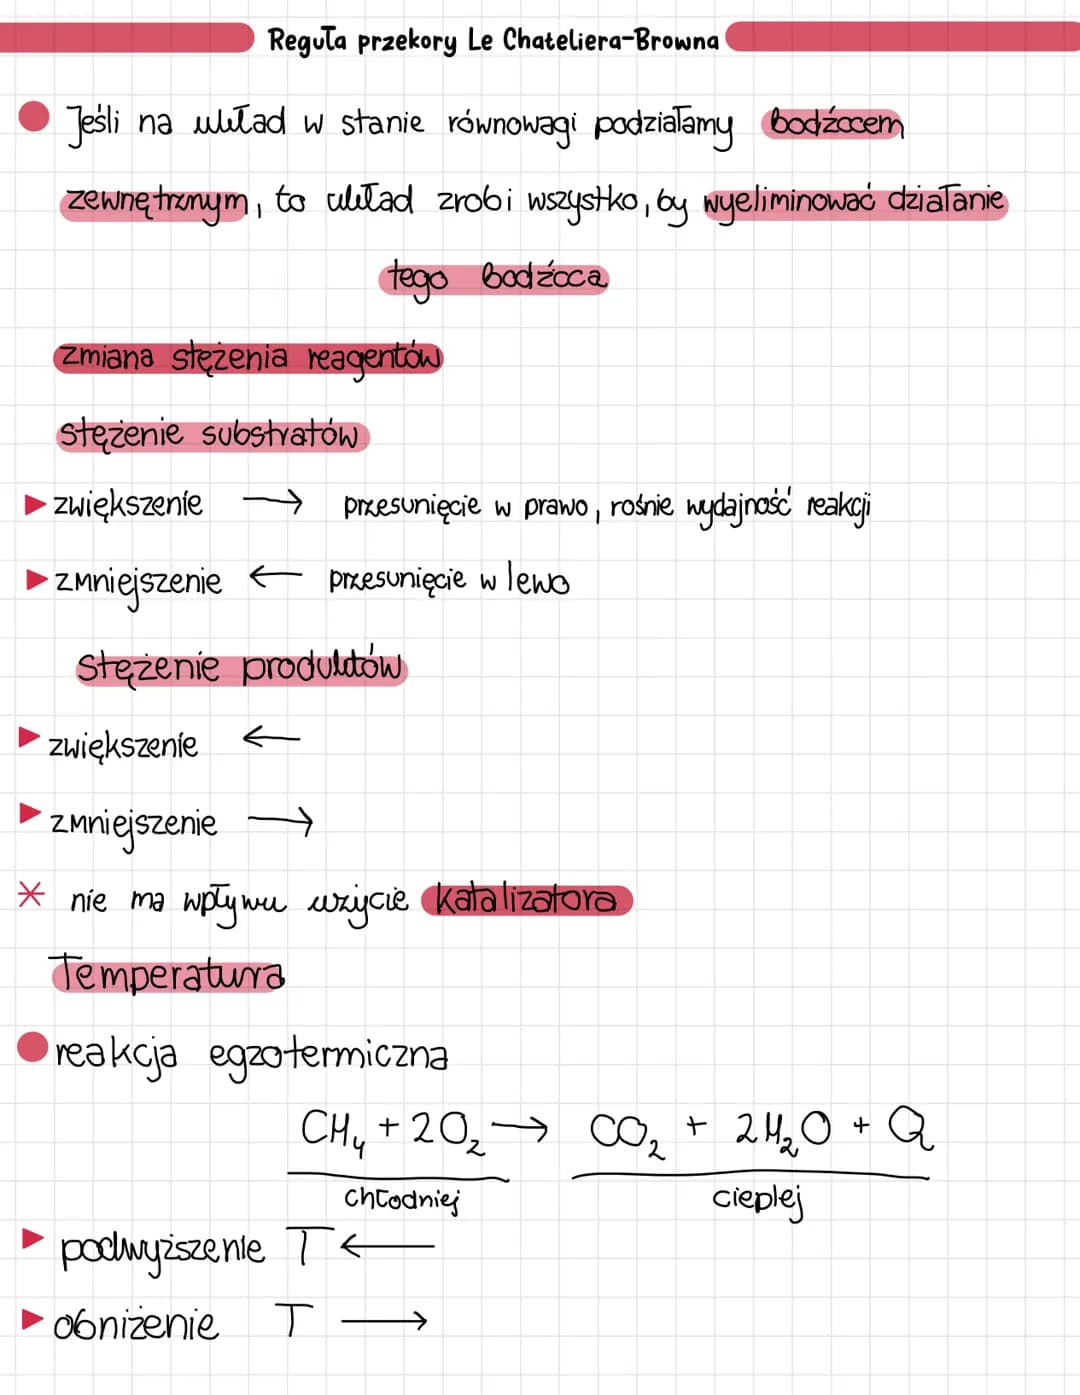 Reguła przekory Le Chateliera-Browna
Jeśli na układ w stanie równowagi podziałamy bodźcem
zewnętrznym, to układ zrobi wszystko, by wyeliminować działanie
tego bodźca
zmiana stężenia reagentów
stężenie substratów
zwiększenie → przesunięcie w prawo, rośnie wydajność reakcji
zmniejszenie ← przesunięcie w lewo
stężenie produktów
zwiększenie ←
zmniejszenie →
* nie ma wpływu użycie katalizatora
Temperatura
reakcja egzotermiczna
CH₄ + 2O₂ → CO₂ + 2H₂O + Q
chłodniej cieplej
podwyższenie T ←
obniżenie T →